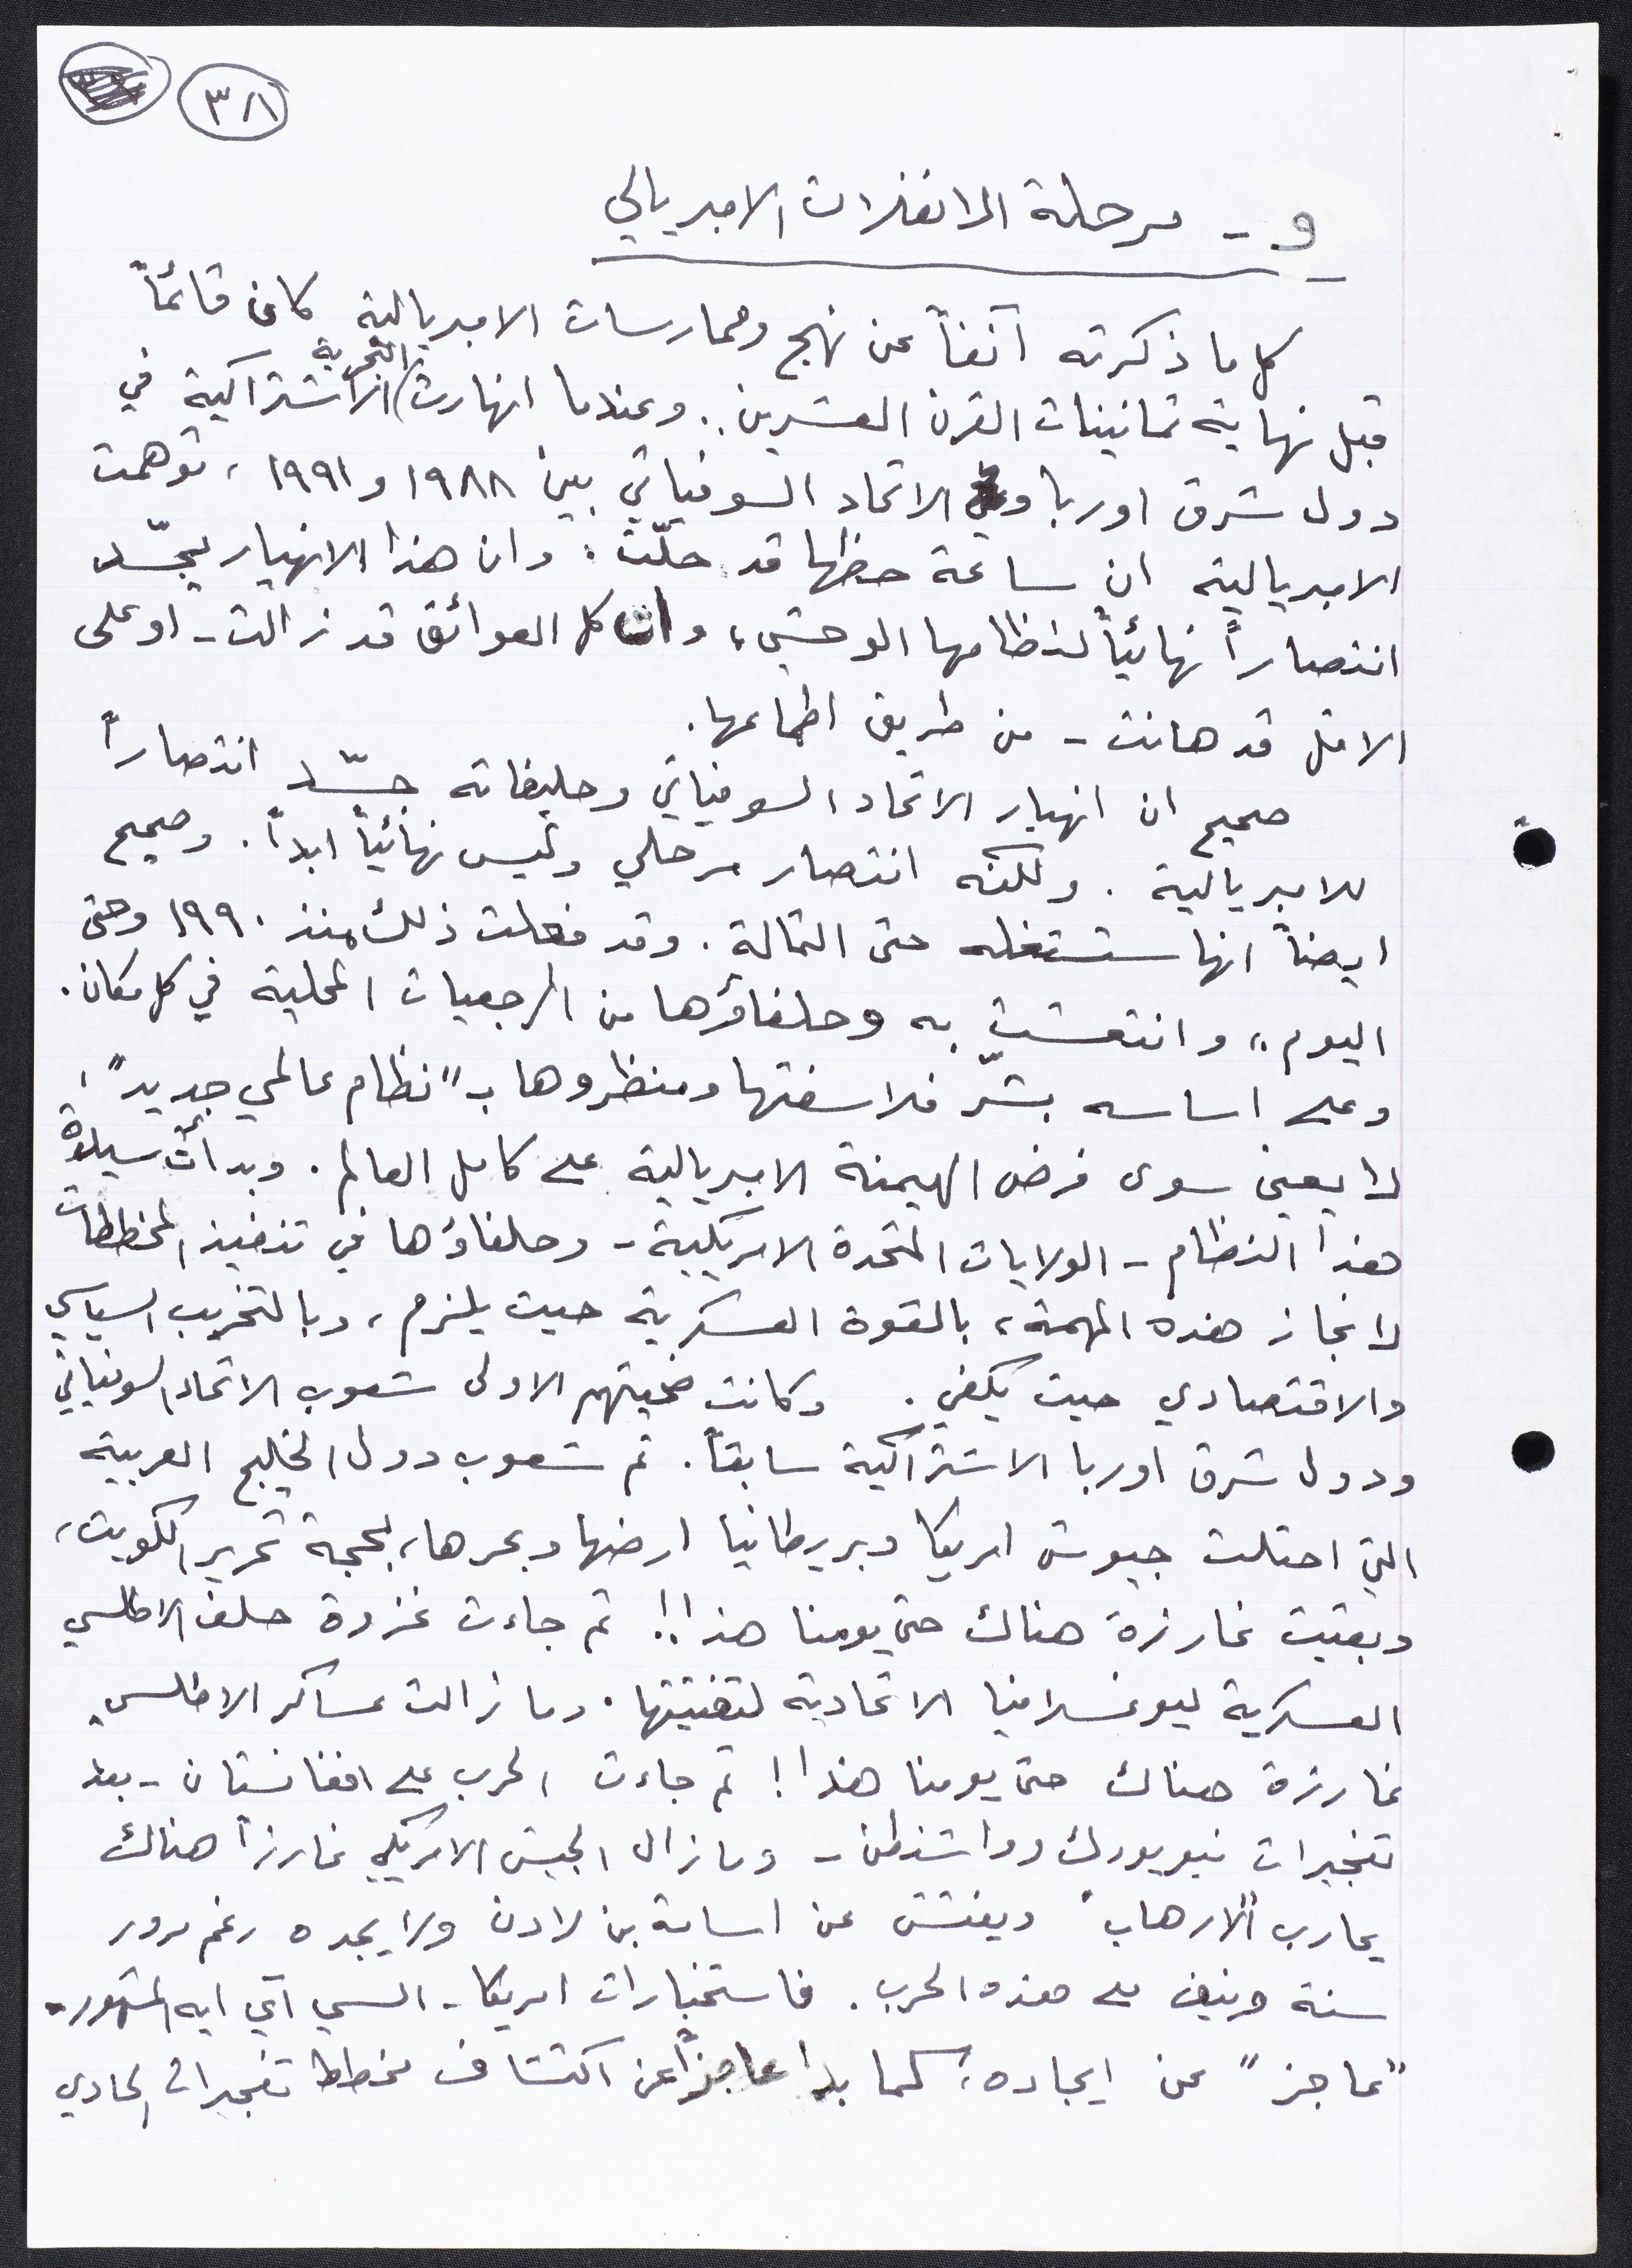 ٣٨١
و - مرحلة الانفلات الامبريالي
كل ما ذكرته آنفاً عن نهج وممارسات الامبريالية كان قائماً
قبل نهاية ثمانينات القرن العشرين.. وعندما انهارت التجربة الاشتراكية في
دول شرق اوربا و الاتحاد السوفياتي بين ١٩٨٨ و ١٩٩١، توهمت
الامبريالية ان ساعة حظها قد حلّت، وان هذا الانهيار يجسّد
انتصاراً نهائياً لنظامها الوحشي، وان كل العوائق قد زالت - او على
الاقل قد هانت - من طريق اطماعها.
صحيح ان انهيار الاتحاد السوفياتي وحليفاته جسّد انتصاراً
للامبريالية. ولكنه انتصار مرحلي وليس نهائياً ابداً. وصحيح
ايضاً انها ستستغله حتى الثمالة. وقد فعلت ذلك منذ ١٩٩٠ وحتى
اليوم، وانتعشت به وحلفاؤها من الرجعيات المحلية في كل مكان.
وعلى اساسه بشّر فلاسفتها ومنظروها بـ "نظام عالمي جديد"،
لا يعني سوى فرض الهيمنة الامبريالية على كامل العالم. وبدأت سيدة
هذا النظام - الولايات المتحدة الامريكية - وحلفاؤها في تنفيذ المخططات
لانجاز هذه المهمة، بالقوة العسكرية حيث يلزم، وبالتخريب السياسي
والاقتصادي حيث يكفي. وكانت ضحيتهم الاولى شعوب الاتحاد السوفياتي
ودول شرق اوربا الاشتراكية سابقاً. ثم شعوب دول الخليج العربية
التي احتلت جيوش امريكا وبريطانيا ارضها وبحرها، بحجة تحرير الكويت،
وبقيت غارزة هناك حتى يومنا هذا!! ثم جاءت غزوة حلف الاطلسي
العسكرية ليوغسلافيا الاتحادية لتفتيتها. وما زالت عساكر الاطلسي
غارزة هناك حتى يومنا هذا! ثم جاءت الحرب على افغانستان - بعد
تفجيرات نيويورك وواشنطن - وما زال الجيش الامريكي غارزاً هناك
يحارب "الارهاب" ويفتش عن اسامة بن لادن ولا يجده رغم مرور
سنة ونيف على هذه الحرب. فاستخبارات امريكا - السي آي ايه المشهورة -
"عاجز" عن ايجاده، كما بدا عاجزاً عن اكتشاف مخطط تفجيرات الحادي